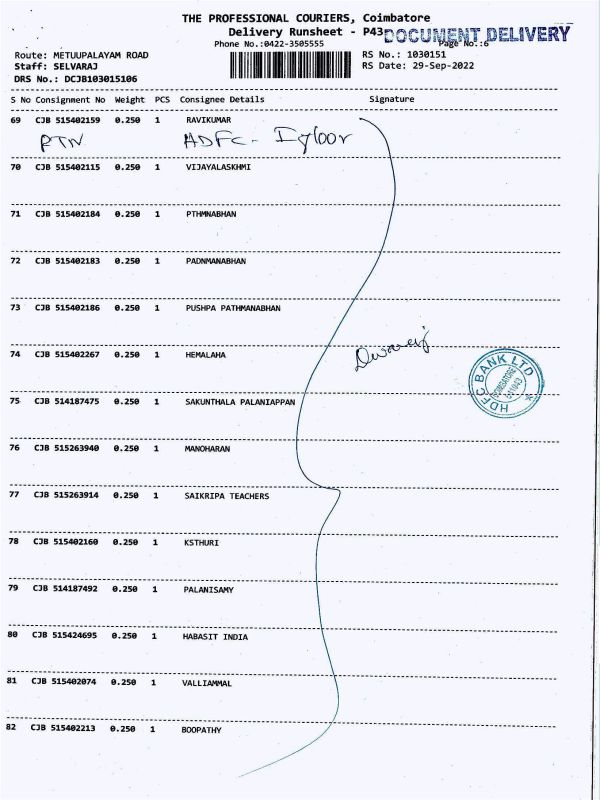 THE PROFESSIONAL COURIERS, Coimbatore
Delivery Runsheet - P43
DOCUMENT DELIVERY
Phone No.:0422-3505555
Page No.:6
Route: METUUPALAYAM ROAD
RS No.: 1030151
Staff: SELVARAJ
RS Date: 29-Sep-2022
DRS No.: DCJB103015106
S No Consignment No Weight PCS Consignee Details Signature
69 CJB 515402159 0.250 1 RAVIKUMAR
RTN HDFC -
70 CJB 515402115 0.250 1 VIJAYALASKHMI
71 CJB 515402184 0.250 1 PTHMNABHAN
72 CJB 515402183 0.250 1 PADNMANABHAN
73 CJB 515402186 0.250 1 PUSHPA PATHMANABHAN
74 CJB 515402267 0.250 1 HEMALAHA
HDFC BANK LTD
COIMBATORE
641043
75 CJB 514187475 0.250 1 SAKUNTHALA PALANIAPPAN
76 CJB 515263940 0.250 1 MANOHARAN
77 CJB 515263914 0.250 1 SAIKRIPA TEACHERS
78 CJB 515402160 0.250 1 KSTHURI
79 CJB 514187492 0.250 1 PALANISAMY
80 CJB 515424695 0.250 1 HABASIT INDIA
81 CJB 515402074 0.250 1 VALLIAMMAL
82 CJB 515402213 0.250 1 BOOPATHY